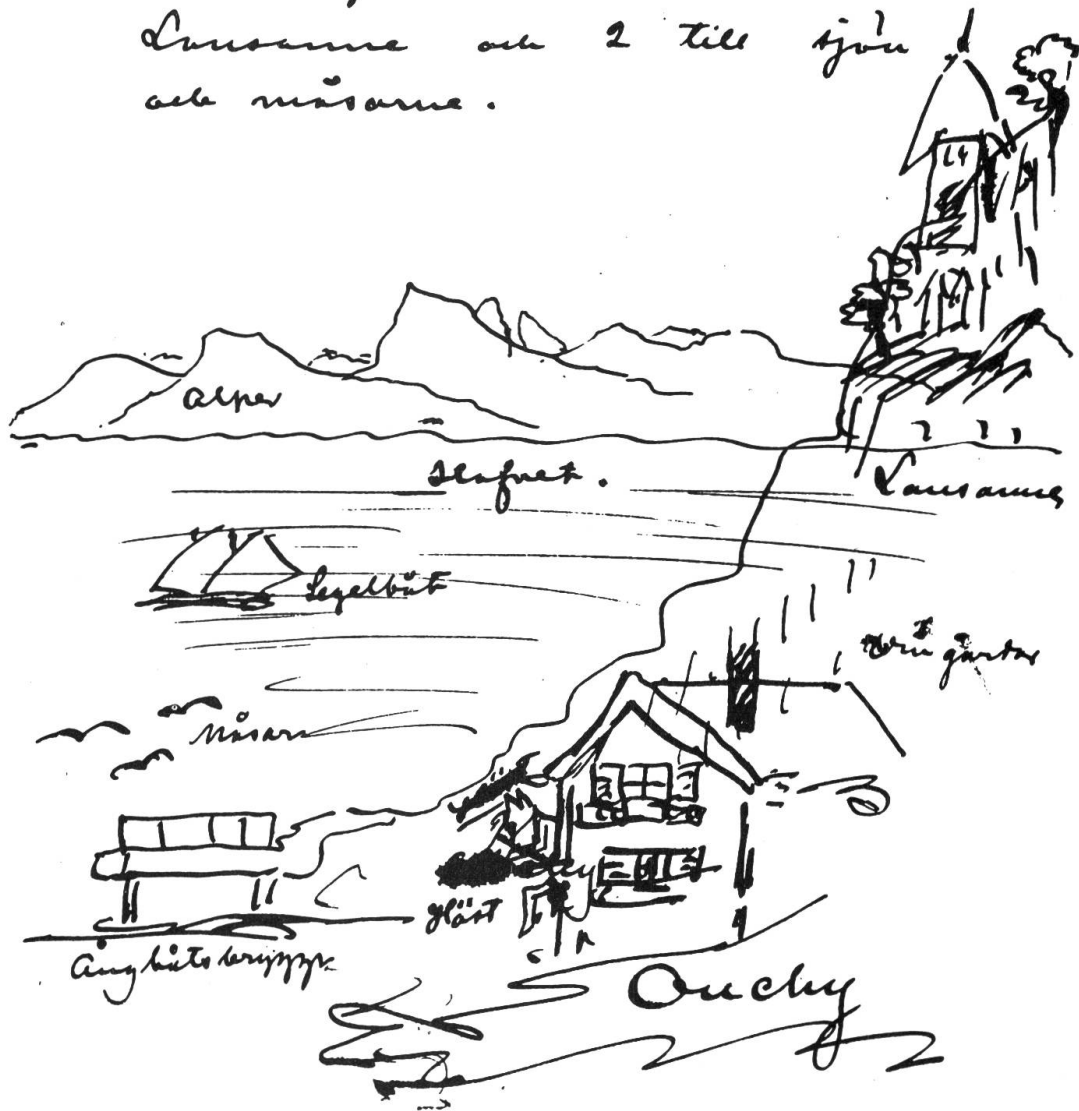 Lausanne och 2 till sjön
och måsarne.
Alper
Hafvet.
Lausanne
Segelbåt
Vingårdar
Måsar
Häst
Ångbåtsbrygga
Ouchy